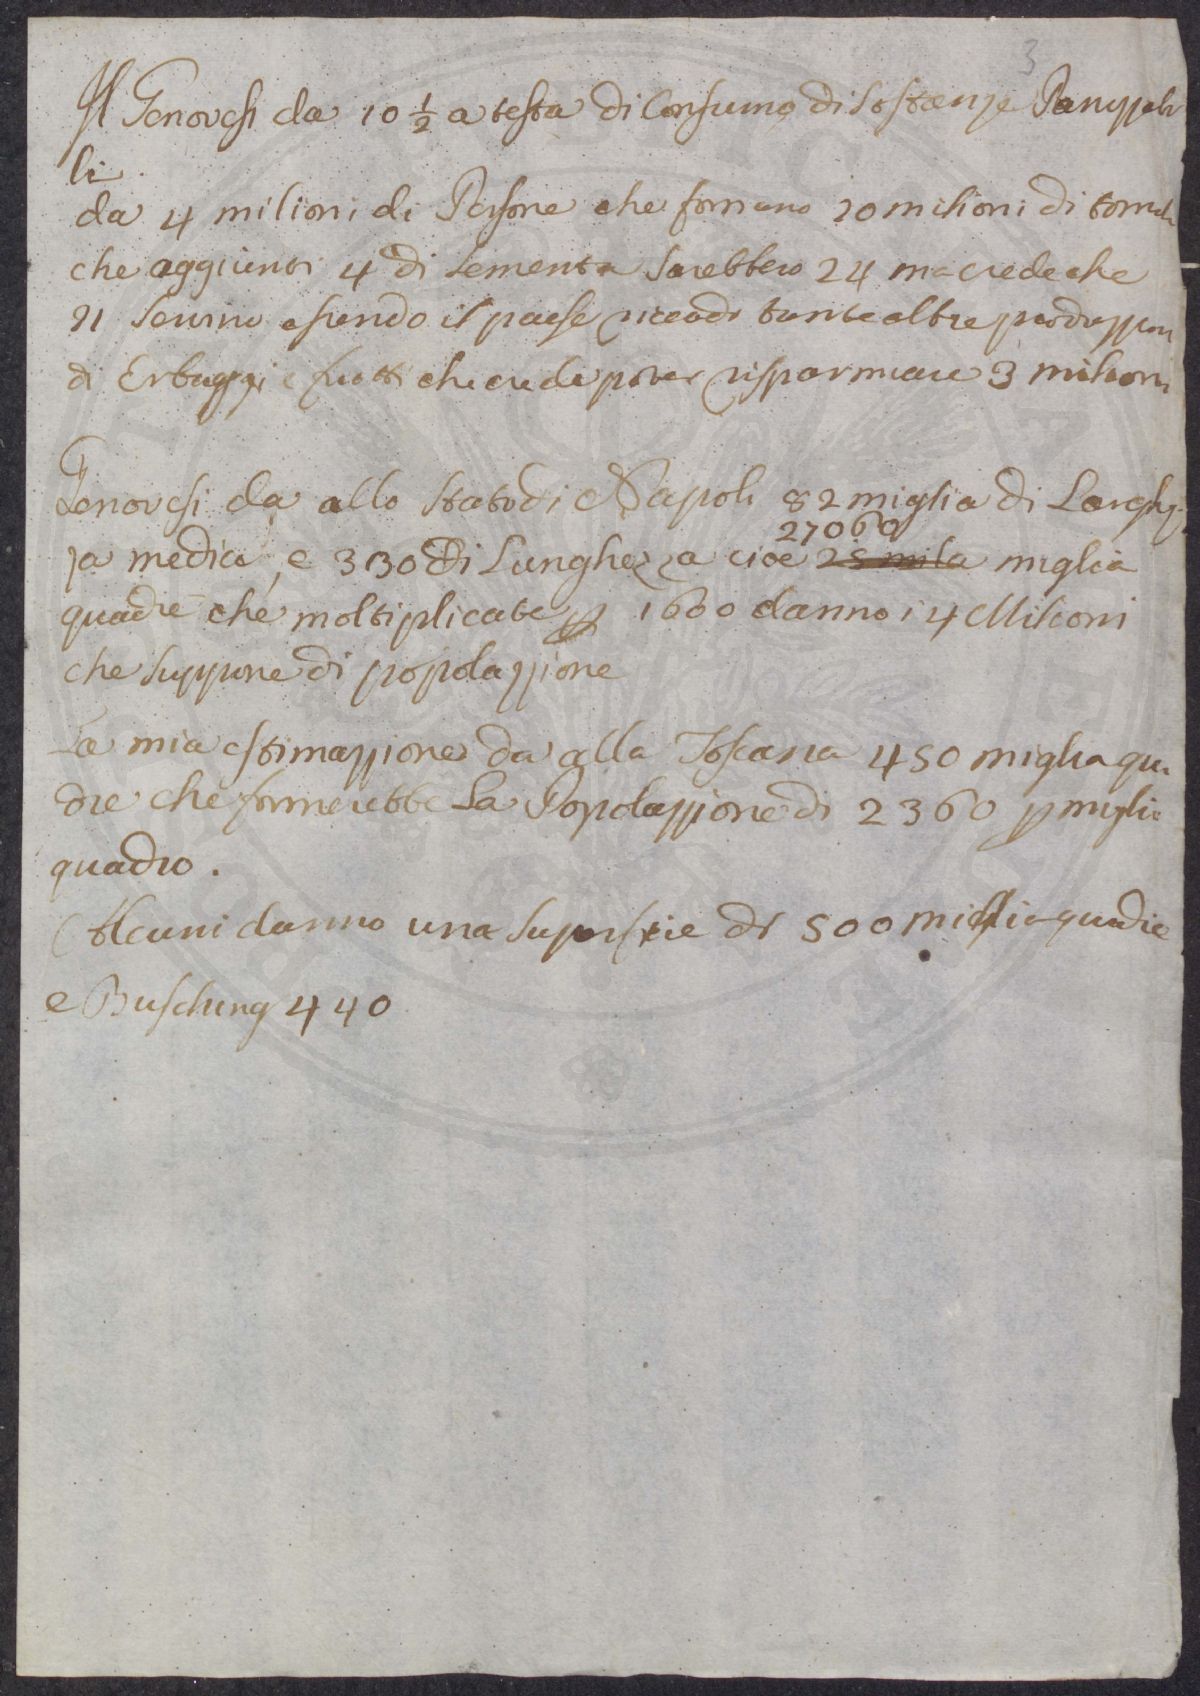 3
Il Genovesi da 10 ½ a testa di Consumo di Sostanze Panizzabi
li.
da 4 milioni di Persone che formano 20 milioni di tomola
che aggiunti 4 di Sementa Sarebbero 24 ma crede che
21 Servino essendo il paese ricco di tante altre produzzioni
di Erbaggi e frutti che crede poter risparmiare 3 milioni
Genovesi da allo Stato di Napoli 82 miglia di Larghez
27060
za media, e 330 di Lunghezza cioe 25 mila miglia
quadre che moltiplicate p 1600 danno i 4 Milioni
che Suppone di popolazzione
La mia estimazzione da alla Toscana 450 miglia qua
dre che formerebbe La Popolazzione di 2360 p miglio
quadro.
Alcuni danno una Superficie di 500 miglia quadre
e Busching 440